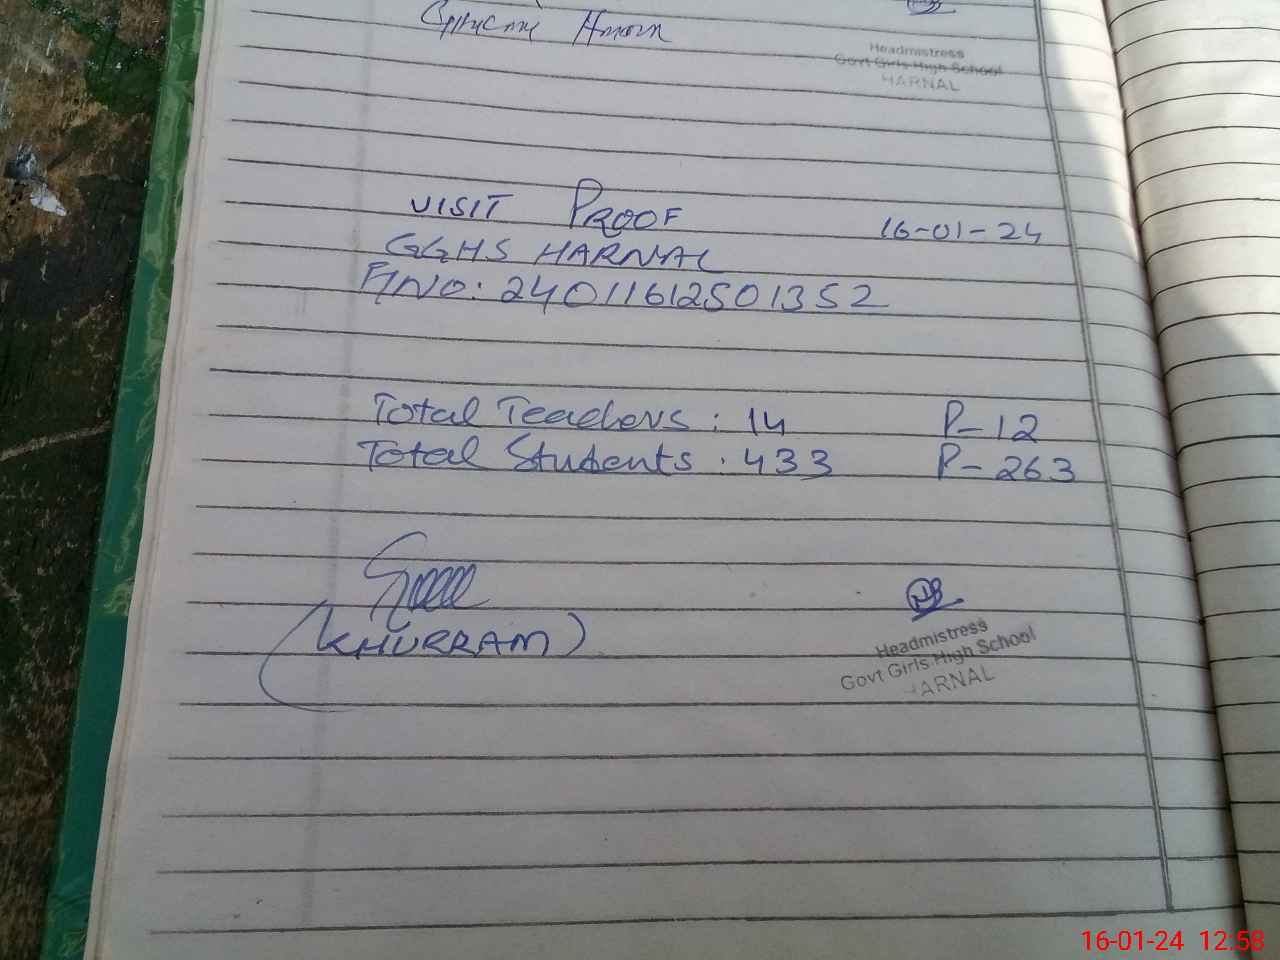 Headmistress
Govt Girls High School
HARNAL
VISIT PROOF 16-01-24
GGHS HARNAL
P/NO: 24011612501352
Total Teachers: 14 P-12
Total Students: 433 P-263
(KHURRAM)
Headmistress
Govt Girls High School
HARNAL
16-01-24 12:58